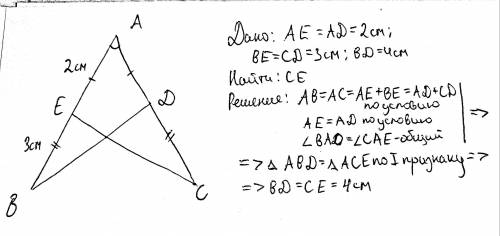 A
2см
E
D
3см
B
C
Дано: AE = AD = 2см;
BE = CD = 3см; BD = 4см
Найти: CE
Решение: AB = AC = AE + BE = AD + CD
по условию
AE = AD по условию
∠BAD = ∠CAE - общий
=>
=> △ ABD = △ ACE по I признаку =>
=> BD = CE = 4см